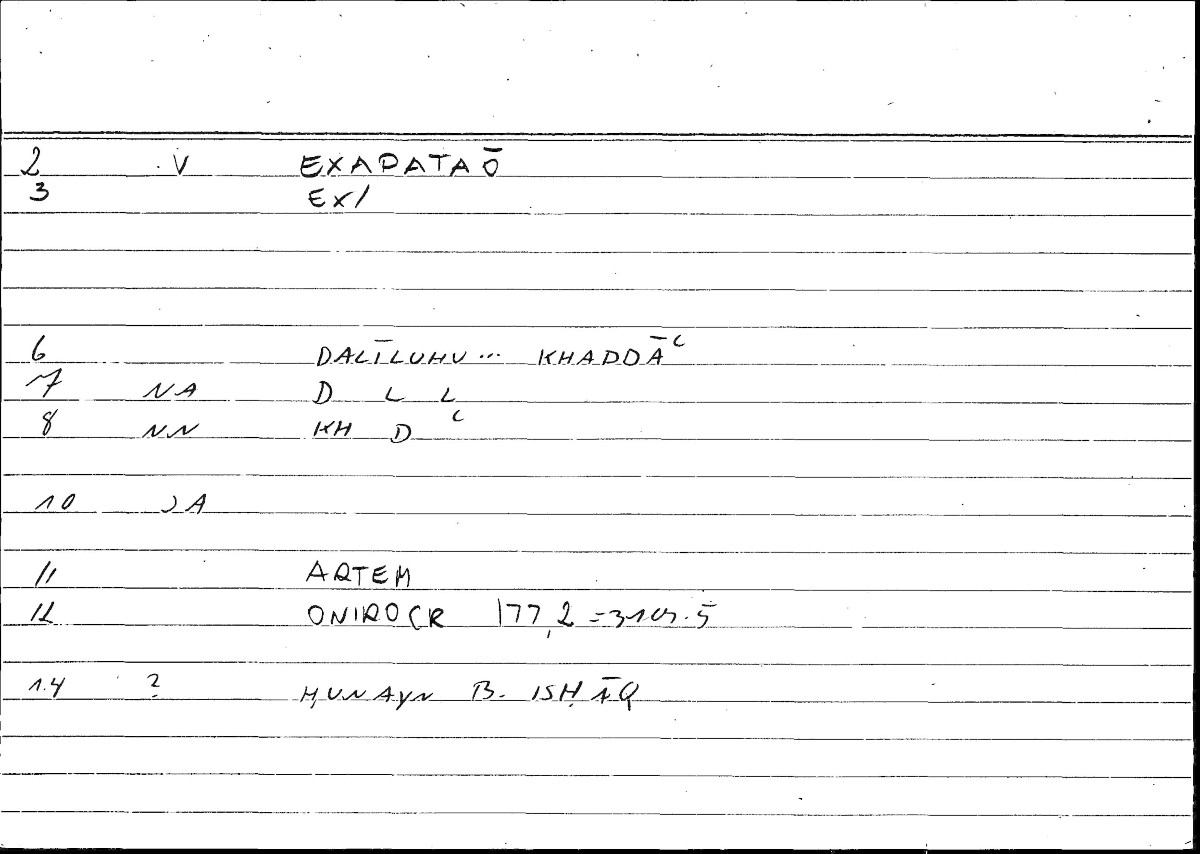 2 V EXAPATAŌ
3 EX/
6 DALĪLUHU... KHADDĀʿ
7 NA D L L
8 NN KH D ʿ
10 JA
11 ARTEM
12 ONIROCR 177,2 =
14 ? ḤUNAYN B. ISḤĀQ